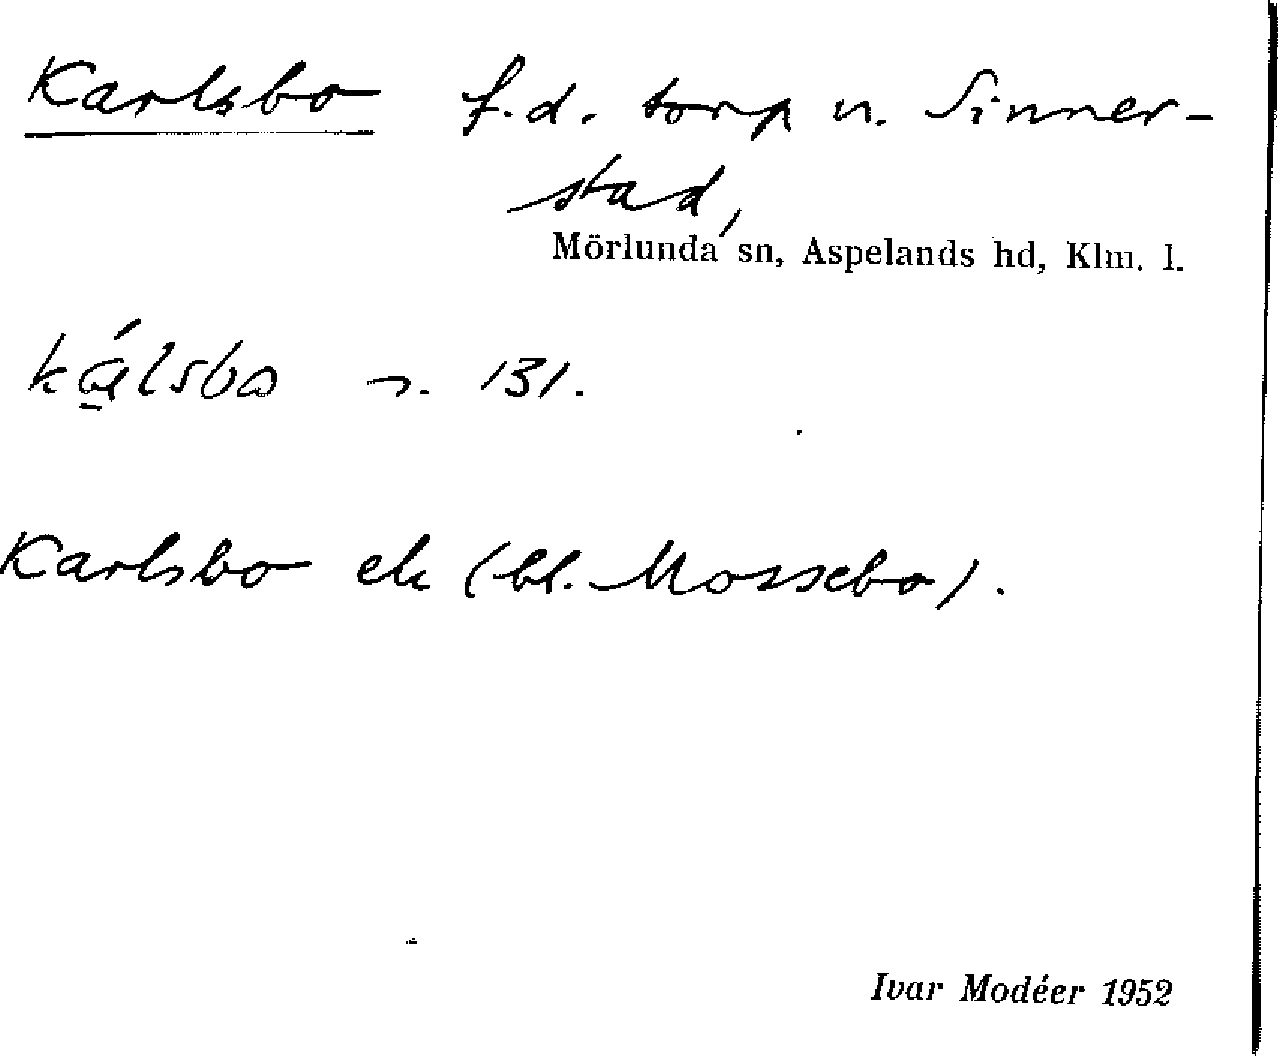 Karlsbo f.d. torp u. Sinner-
stad,
Mörlunda sn, Aspelands hd, Klm. l.
kálsbo 131.
Karlsbo ek (bl. Mossebo).
Ivar Modéer 1952